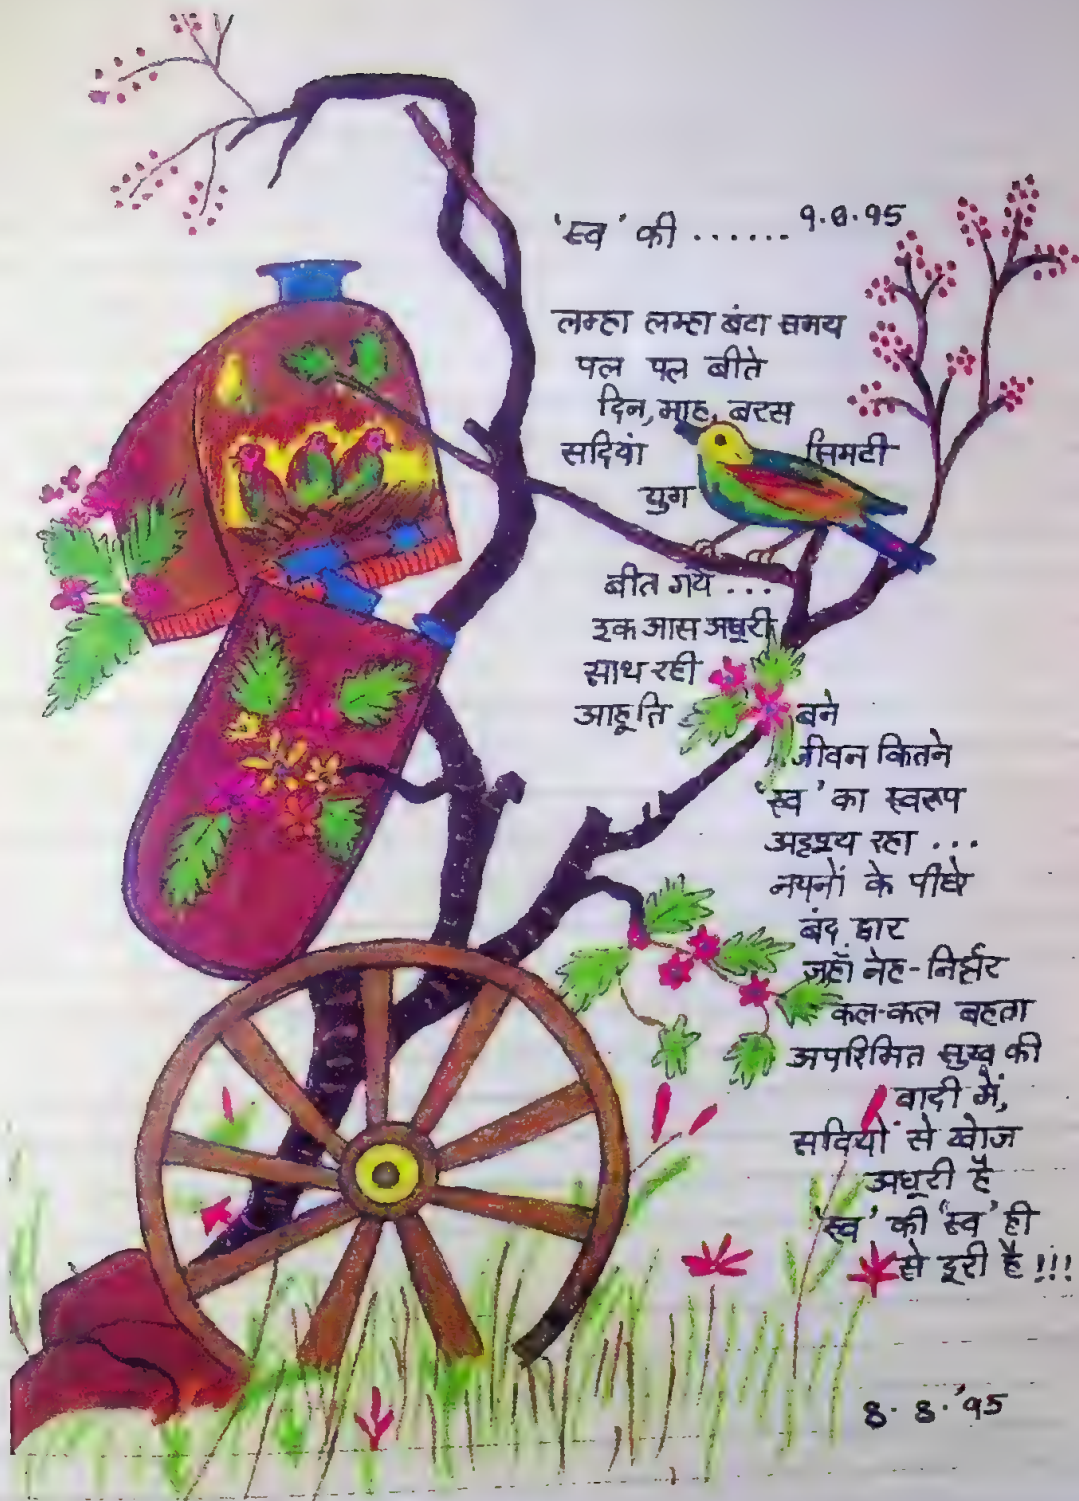 'स्व' की ...... 9.8.95
लम्हा लम्हा बंटा समय
पल पल बीते
दिन, माह, बरस
सदियां सिमटी
युग
बीत गये ...
इक आस अधूरी
साथ रही
आहूति बने
जीवन कितने
'स्व' का स्वरूप
अदृश्य रहा ...
नयनों के पीछे
बंद द्वार
जहाँ नेह-निर्झर
कल-कल बहता
अपरिमित सुख की
वादी में,
सदियों से खोज
अधूरी है
'स्व' की 'स्व' ही
से दूरी है !!!
8.8.'95